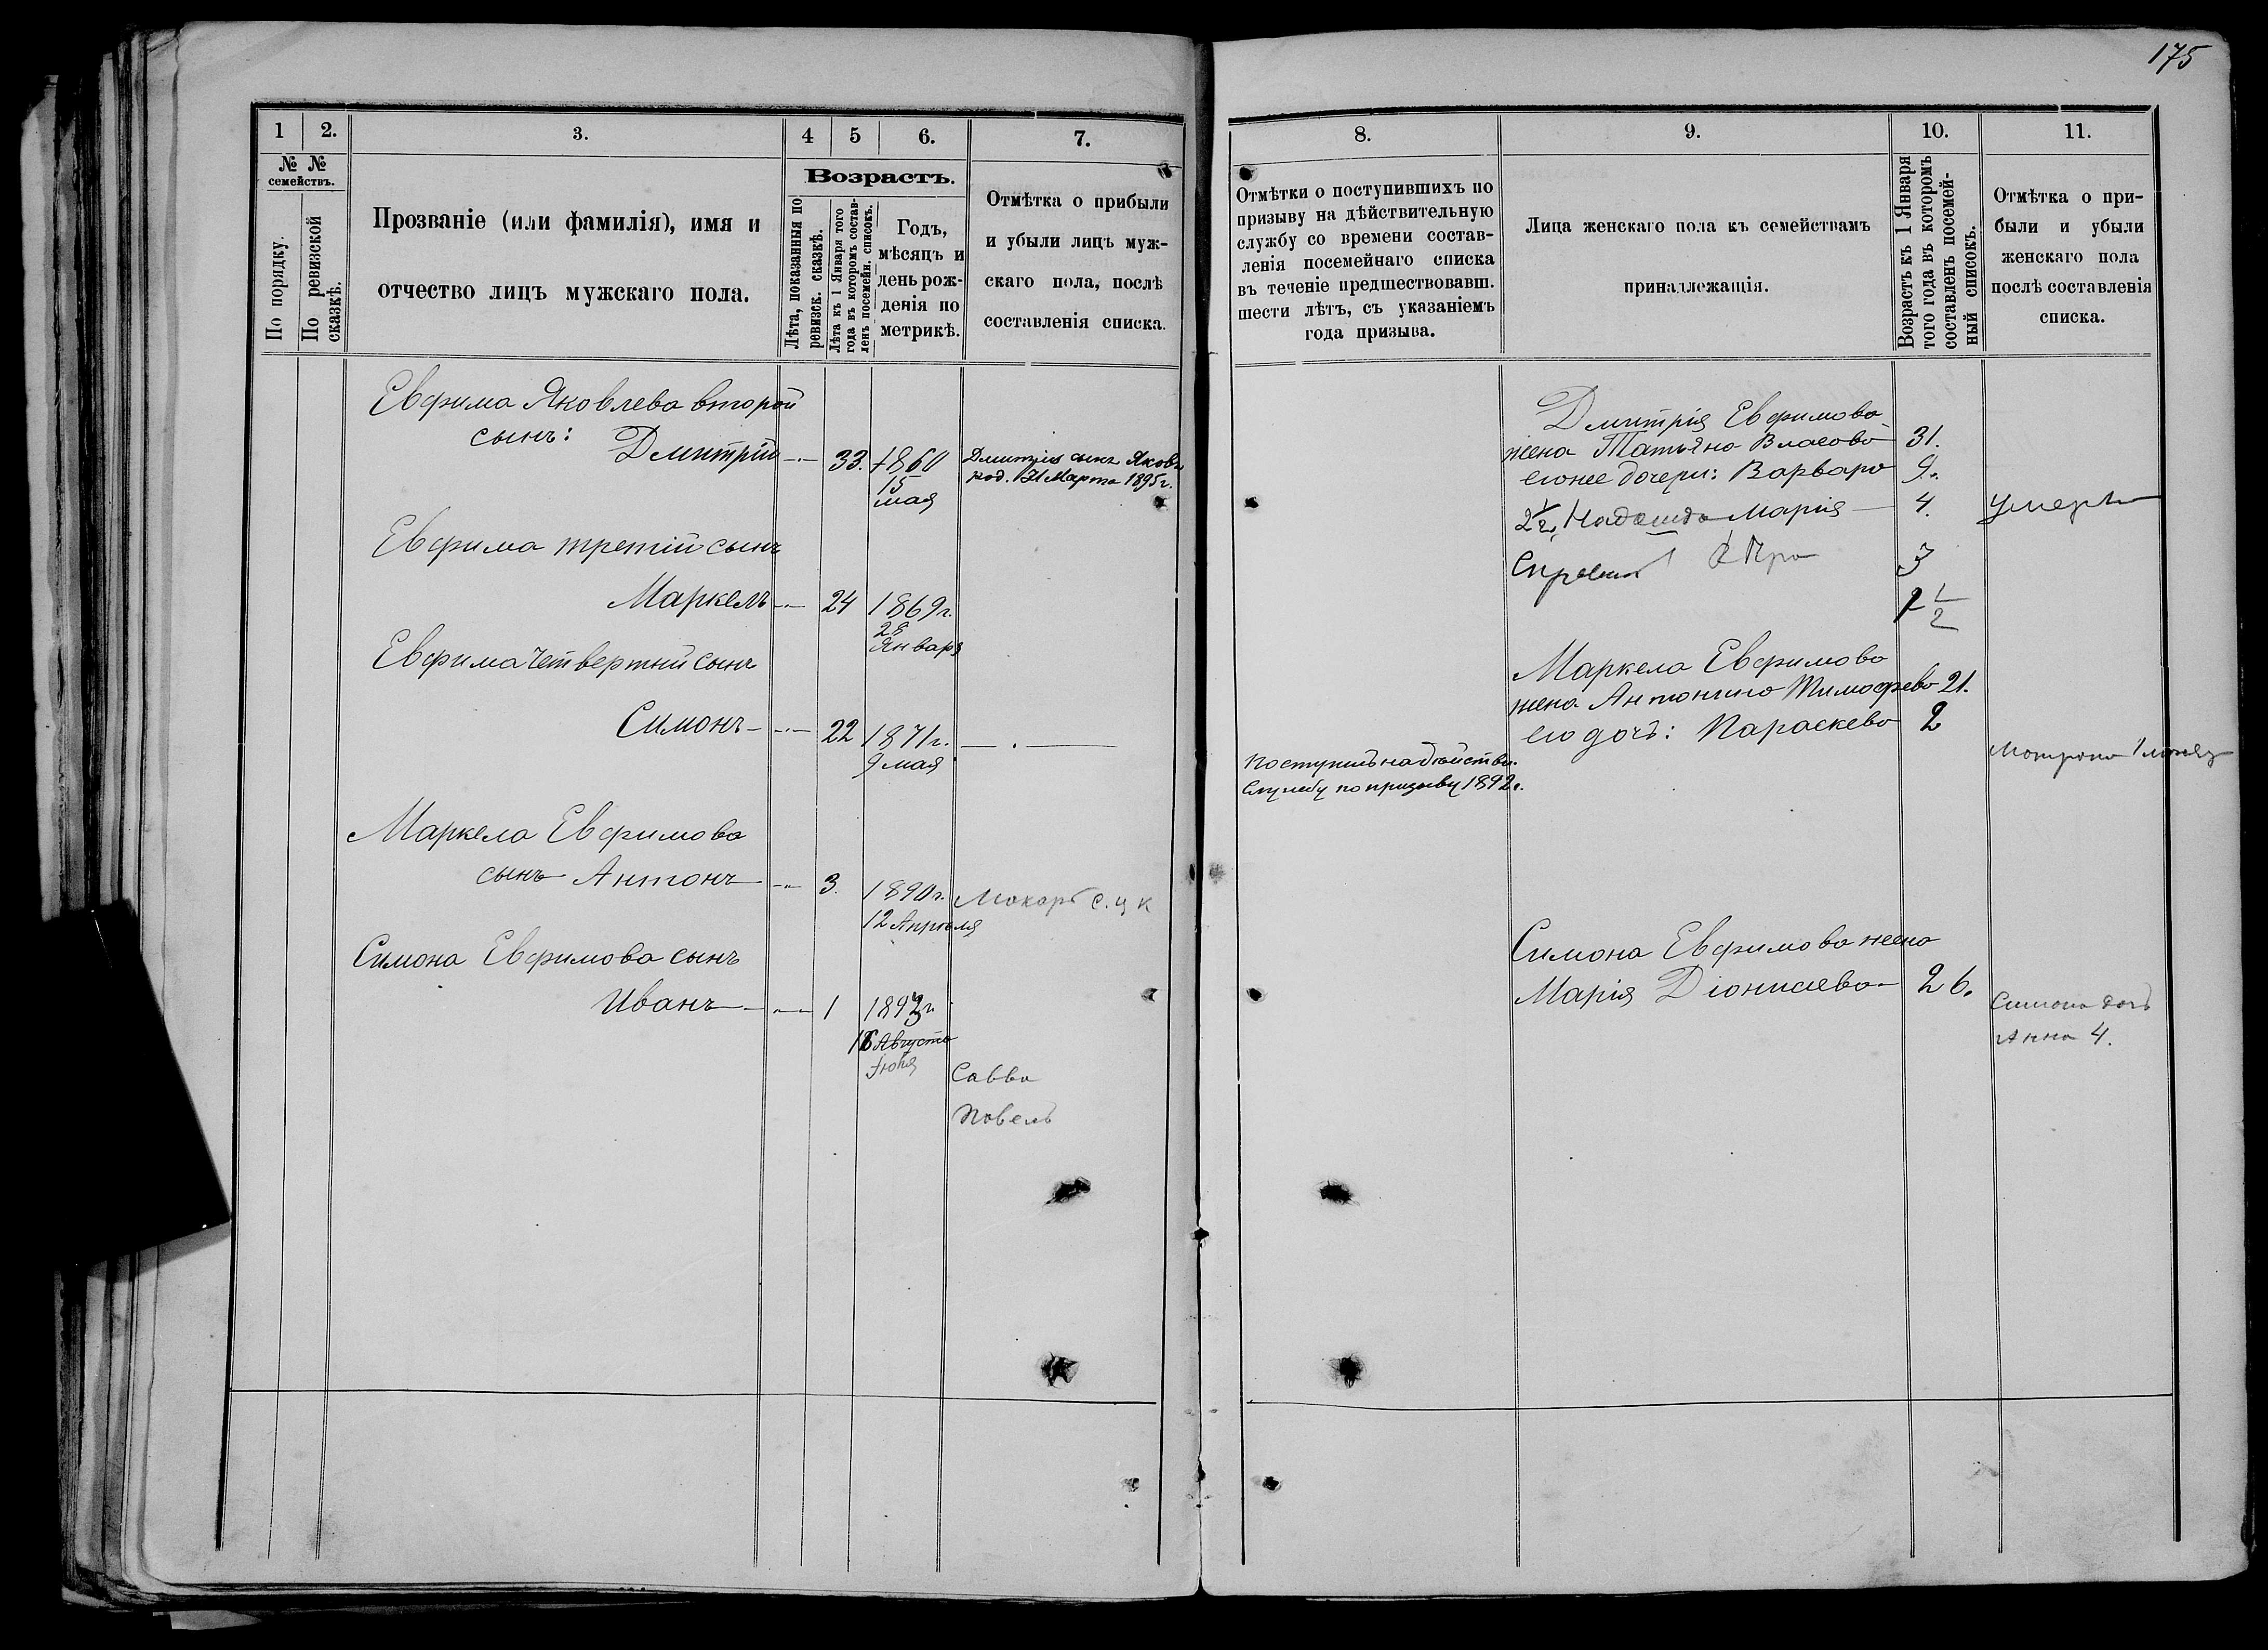 175
1
2.
3.
4
5
6.
7.
№ №
семействъ.
По порядку.
По ревизской
сказкѣ.
Прозваніе (или фамилія), имя и
отчество лицъ мужскаго пола.
Возрастъ.
Лѣта, показанныя по
ревизск. сказкѣ.
Лѣта къ 1 Января того
года въ которомъ состав-
ленъ посемейн. списокъ.
Годъ,
мѣсяцъ и
день рож-
денія по
метрикѣ.
Отмѣтка о прибыли
и убыли лицъ муж-
скаго пола, послѣ
составленія списка.
Евфима Яковлева второй
сынъ: Дмитрій 33. 1860
15
мая
Дмитрія сынъ Яковъ
род. 21 Марта 1895 г.
Евфима третій сынъ
Маркелъ 24 1869 г.
28
Января
Евфима четвертый сынъ
Симонъ 22 1871 г.
9 мая
Маркела Евфимова
сынъ Антонъ 3. 1890 г.
12 Апрѣля
Макаръ
Симона Евфимова сынъ
Иванъ 1 1893 г.
16 Августа
Савва
Павелъ
8.
9.
10.
11.
Отмѣтки о поступившихъ по
призыву на дѣйствительную
службу со времени состав-
ленія посемейнаго списка
въ теченіе предшествовавш.
шести лѣтъ, съ указаніемъ
года призыва.
Лица женскаго пола къ семействамъ
принадлежащія.
Возрастъ къ 1 Января
того года въ которомъ
составленъ посемей-
ный списокъ.
Отмѣтка о при-
были и убыли
женскаго пола
послѣ составленія
списка.
Дмитрія Евфимова
жена Татьяна Власова 31.
его дочери: Варвара 9.
Надежда Марія 4.
3
1/2
Маркела Евфимова
жена Антонина Тимофеева 21.
его дочь: Параскева 2
Поступилъ на дѣйств.
службу по призыву 1892 г.
Матрона
Симона Евфимова жена
Марія Діонисіева 26.
Симона дочь
Анна 4.